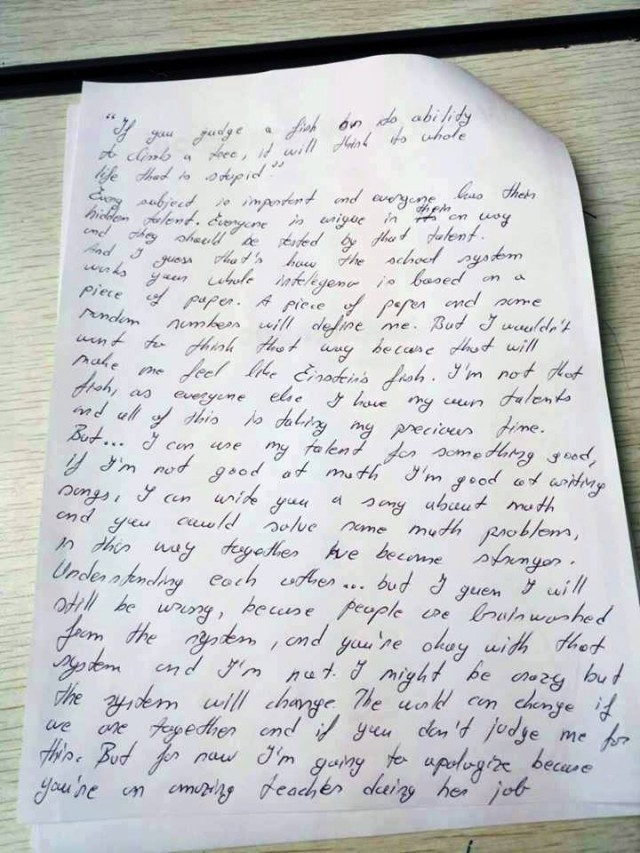 "If you judge a fish on its ability
to climb a tree, it will think its whole
life that is stupid"
Every subject is important and everyone has their
hidden talent. Everyone is unique in their own way
and they should be tested by that talent.
And I guess that's how the school system
works your whole intelegence is based on a
piece of paper. A piece of paper and some
random numbers will define me. But I wouldn't
want to think that way because that will
make me feel like Einstein's fish. I'm not that
fish, as everyone else I have my own talents
and all of this is taking my precious time.
But... I can use my talent for something good,
if I'm not good at math I'm good at writing
songs, I can write you a song about math
and you could solve some math problems,
in this way together we become stronger.
Understanding each other... but I guess I will
still be wrong, because people are brainwashed
from the system, and you're okay with that
system and I'm not. I might be crazy but
the system will change. The world can change if
we are together and if you don't judge me for
this. But for now I'm going to apologize because
you're an amazing teacher doing her job